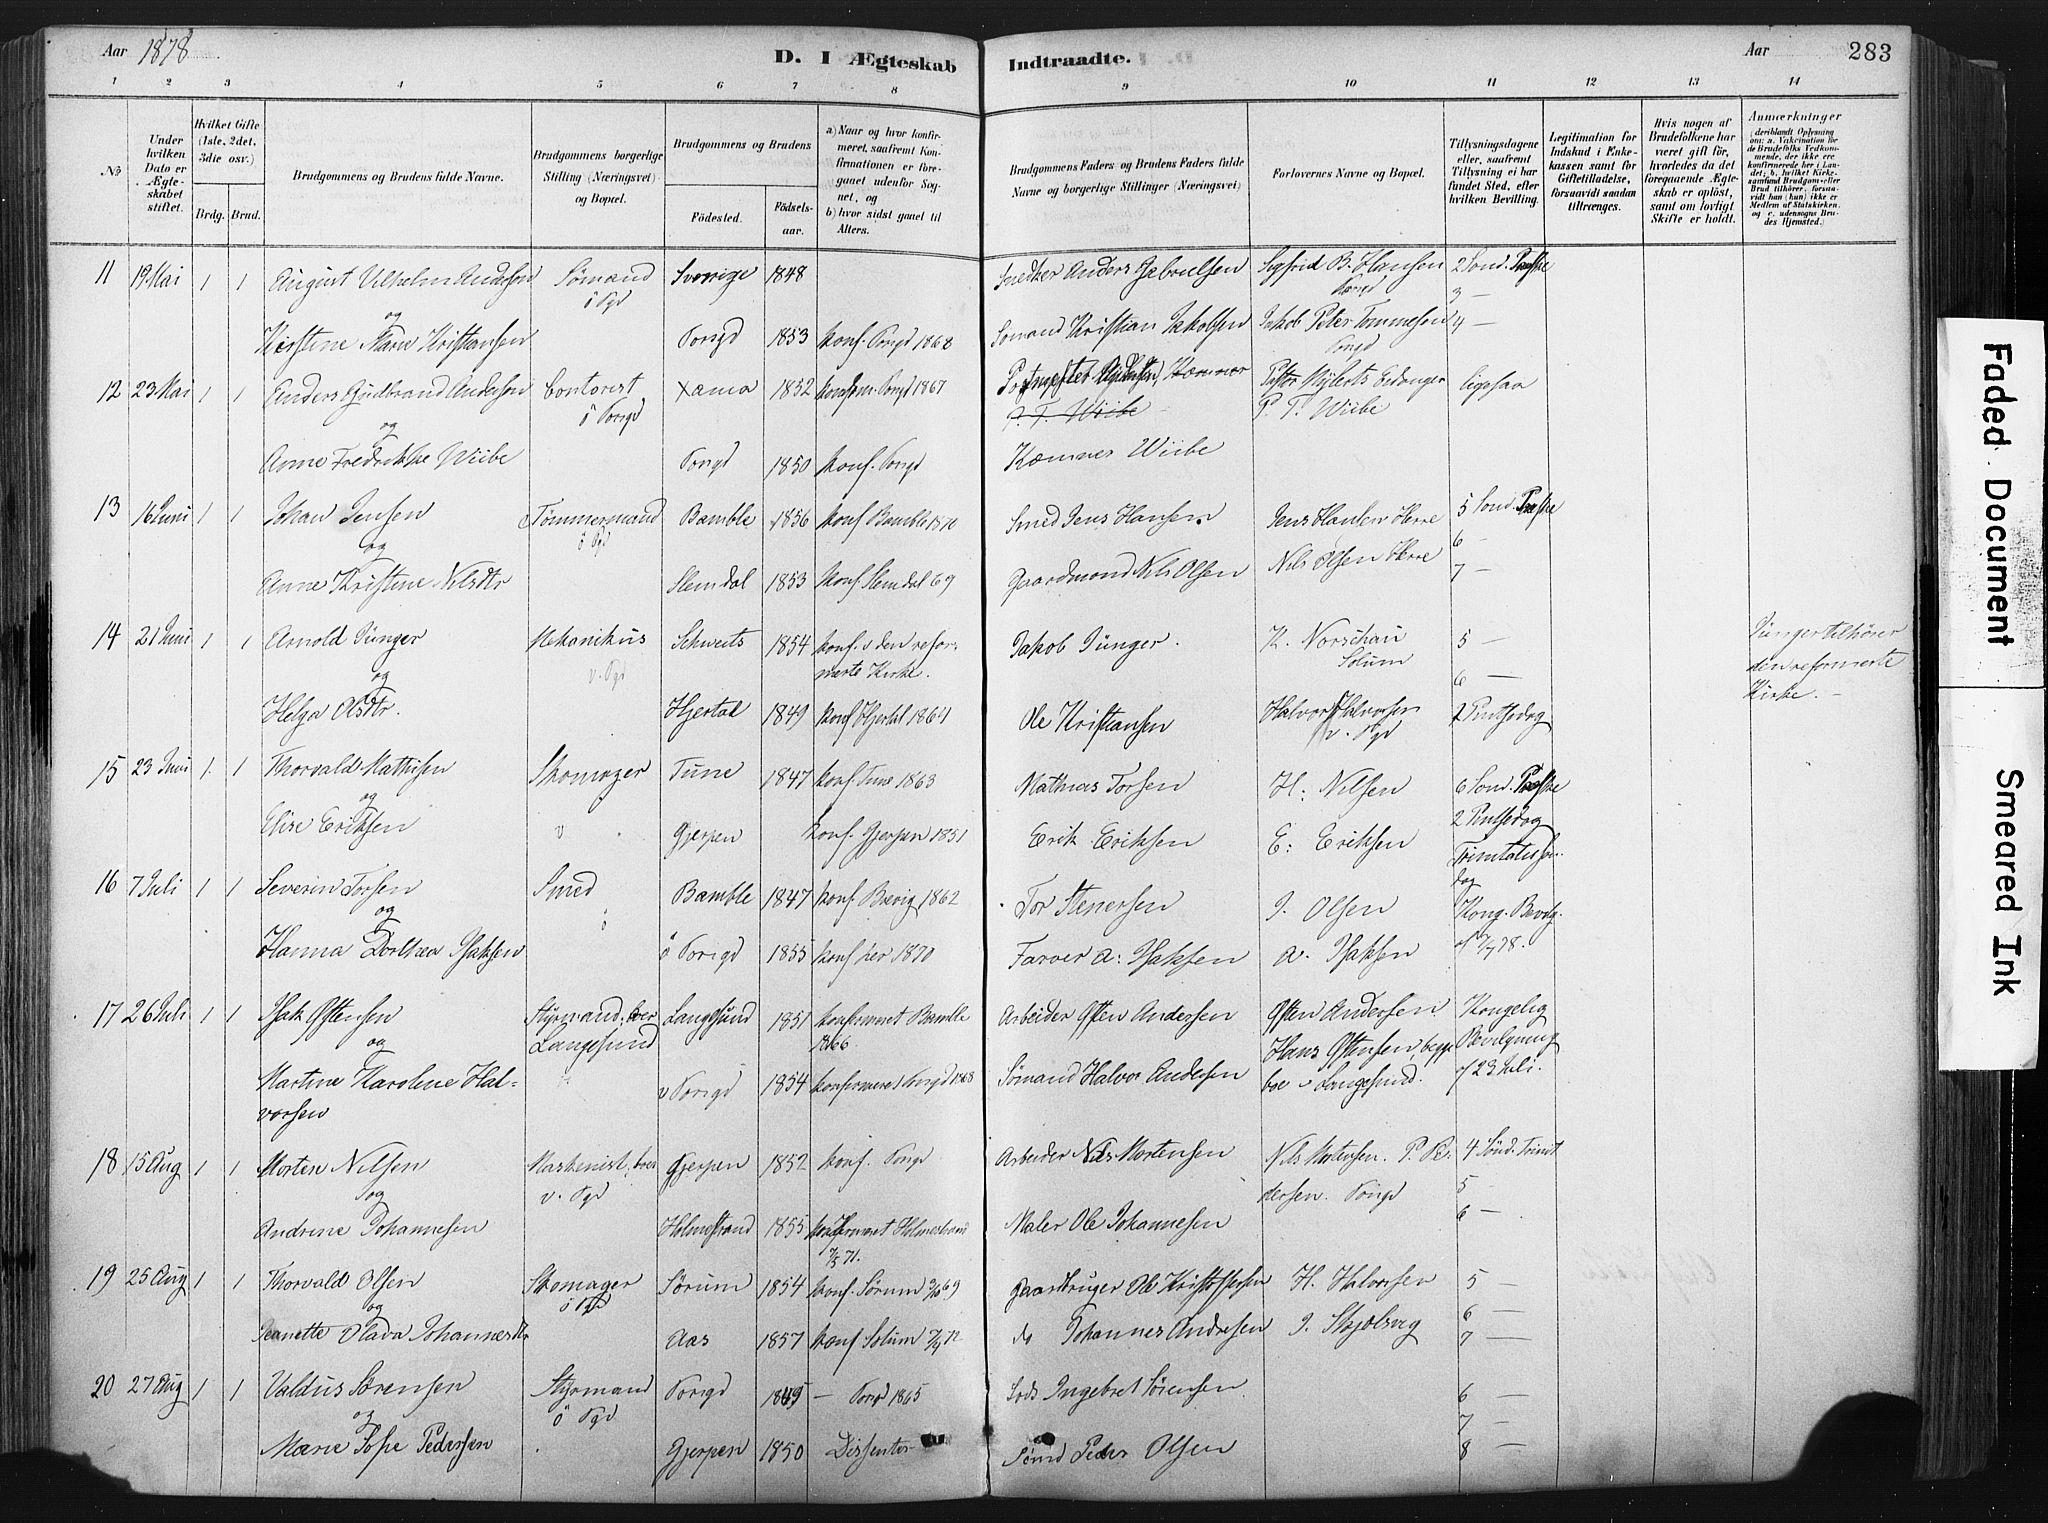 Aar 1878
D. I Ægteskab Indtraadte.
Aar 283
1 2 3 4 5 6 7 8 9 10 11 12 13 14
№
Under hvilken Dato er Ægteskabet stiftet.
Hvilket Gifte (1ste, 2det, 3die osr.)
Brdg. Brud.
Brudgommens og Brudens fulde Navne.
Brudgommens borgerlige Stilling (Næringsvei) og Bopæl.
Brudgommens og Brudens
Födested. Födselsaar.
a) Naar og hvor konfirmeret, saafremt Konfirmationen er foregaaet udenfor Sognet, og
b) hvor sidst gaaet til Alters.
Brudgommens Faders og Brudens Faders fulde Navne og borgerlige Stillinger (Næringsvei)
Forlovernes Navne og Bopæl.
Tillysningsdagene eller, saafremt Tillysning ei har fundet Sted, efter hvilken Bevilling.
Legitimation for Indskud i Enkekassen samt for Giftetilladelse, forsaavidt saadan tiltrænges.
Hvis nogen af Brudefolkene har været gift för, hvorledes da det foregaaende Ægteskab er oplöst, samt om lovligt Skifte er holdt.
Anmærkninger
(deriblandt Oplysning om: a. Vakcination for de Brudefolks Vedkommende, der ikke ere konfirmerede her i Landet; b. hvilket Kirkesamfund Brudgom eller Brud tilhörer, forsaavidt han (hun) ikke er Medlem af Statskirken, og c. udensogns Brudes Hjemsted.)
11 19 Mai 1 1 August Vilhelm Andersen Sømand Sverige 1848 Snedker Anders Gabrielsen Sigfrid B. Hansen 2 Sond. Paaske
og ö Pgd Porsgd 3 —
Kirstine Marie Kristiansen Porsgd 1853 Konf. Porsgd 1868 Sømand Kristian Jakobsen Jakob Peter Tommesen 4 —
Porsgd
12 23 Mai 1 1 Anders Gudbrand Andersen Contorist 1852 Konfirm. Porsgd 1867 Postmester Andersen, Kæmner Pastor Mylerts Eidanger ligesaa
og ö Porsgd P. T. Wiibe P. T. Wiibe
Anne Fredrikke Wiibe Porsgd 1850 Konf. Porsgd Kæmner Wiibe
13 16 Juni 1 1 Johan Jensen Tømmermand Bamble 1856 Konf Bamble 1870 Smed Jens Hansen Jens Hansen Herre 5 Sond. Paaske
og ö Pgd 6 —
Anne Kristine Nilsdtr Slemdal 1853 Konf Slemdal 69 Gaardmand Nils Olsen Nils Olsen Herre 7 —
14 21 Juni 1 1 Arnold Jünger Mekanikus Schweits 1854 Konf. v den reformerte Kirke. Jakob Jünger. K. Norschau 5 — Jünger tilhører
og v. Pgd Solum 6 — den reformerte
Helga Olsdtr. Hjertdal 1849 Konf Hjertdal 1864 Ole Kristiansen Halvor Halvorsen 2 Pintsedag Kirke. —
v. Pgd
15 23 Juni 1 1 Thorvald Mathisen Skomager Tune 1847 Konf Tune 1863 Mathias Torsen H: Nilsen 6 Sond. Paaske
og 2 Pintsedag
Elise Eriksen v Gjerpen Konf. Gjerpen 1851 Erik Eriksen E: Eriksen Trinitatissondag
16 7 Juli 1 1 Severin Torsen Smed Bamble 1847 Konf Brevig 1862 Tor Stenersen J. Olsen Kong. Bevilg.
og ö
Hanna Dorthea Isaksen ö Porsgd 1855 Konf her 1870 Farver A: Isaksen A. Isaksen af 7/7 78.
17 26 Juli 1 1 Isak Ostensen Styrmand, boer Langesund Langesund 1851 Konfirmeret Bamble 1866. Arbeider Osten Andersen Osten Andersen Kongelig
og Hans Ostensen, begge Bevilgning
Martine Karoline Halvorsen v Porsgd 1854 Konfirmeret Porsgd 1868 Sømand Halvor Andersen boe v Langesund. af 23 Juli.
18 15 Aug 1 1 Morten Nilsen Maskinist, boer Gjerpen 1852 Konf. Porsgd Arbeider Nils Mortensen Nils Mortensen. P. Pedersen. Porsgd 4 Sönd. Trinit
og v. Pgd 5 —
Andrine Johannesen Holmestrand 1855 Konfirmeret Holmestrand 7/5 71. Maler Ole Johannesen 6 —
19 25 Aug 1 1 Thorvald Olsen Skomager Sørum 1854 Konf. Sørum 69 Gaardbruger Ole Kristoffersen H. Halvorsen 5 —
og ö Pgd 6 —
Jeanette Olava Johannesdtr Aas 1857 Konf Solum 72 do Johannes Andresen J. Skjelsvig 7 —
20 27 Aug 1 1 Valdus Sørensen Styrmand Porsgd 1849 — Porsgd 1865 Lods Ingebret Sörensen. 6 —
og ö Pgd 7 —
Maren Sofie Pedersen Gjerpen 1850 Dissenter Sömd Peder Olsen 8 —
Faded Document Smeared Ink